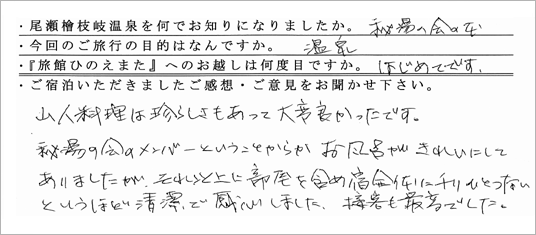 ・尾瀬檜枝岐温泉を何でお知りになりましたか。 秘湯の会の本
・今回のご旅行の目的はなんですか。 温泉
・『旅館ひのえまた』へのお越しは何度目ですか。 はじめてです。
・ご宿泊いただきましたご感想・ご意見をお聞かせ下さい。
山人料理は珍らしさもあって大変良かったです。
秘湯の会のメンバーということからかお風呂がきれいにして
ありましたが、それ以上に部屋を含め宿全体にチリひとつない
というほど清潔で感心しました。接客も最高でした。